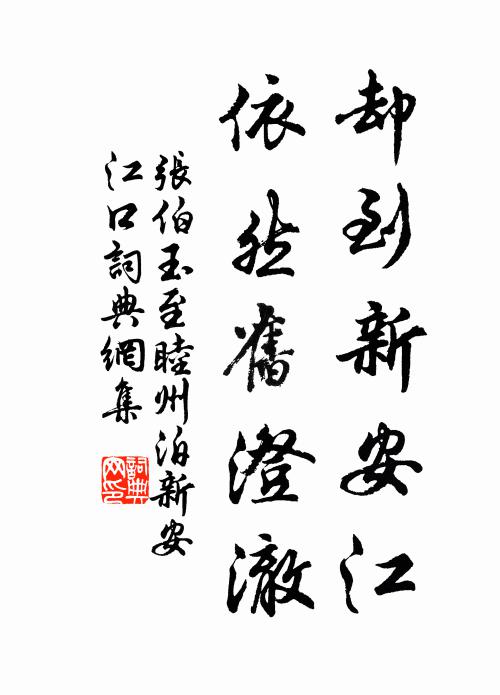 却到新安江
依然舊澄澈
張伯玉至睦州泊新安
江口詞典網集
詞典
网印